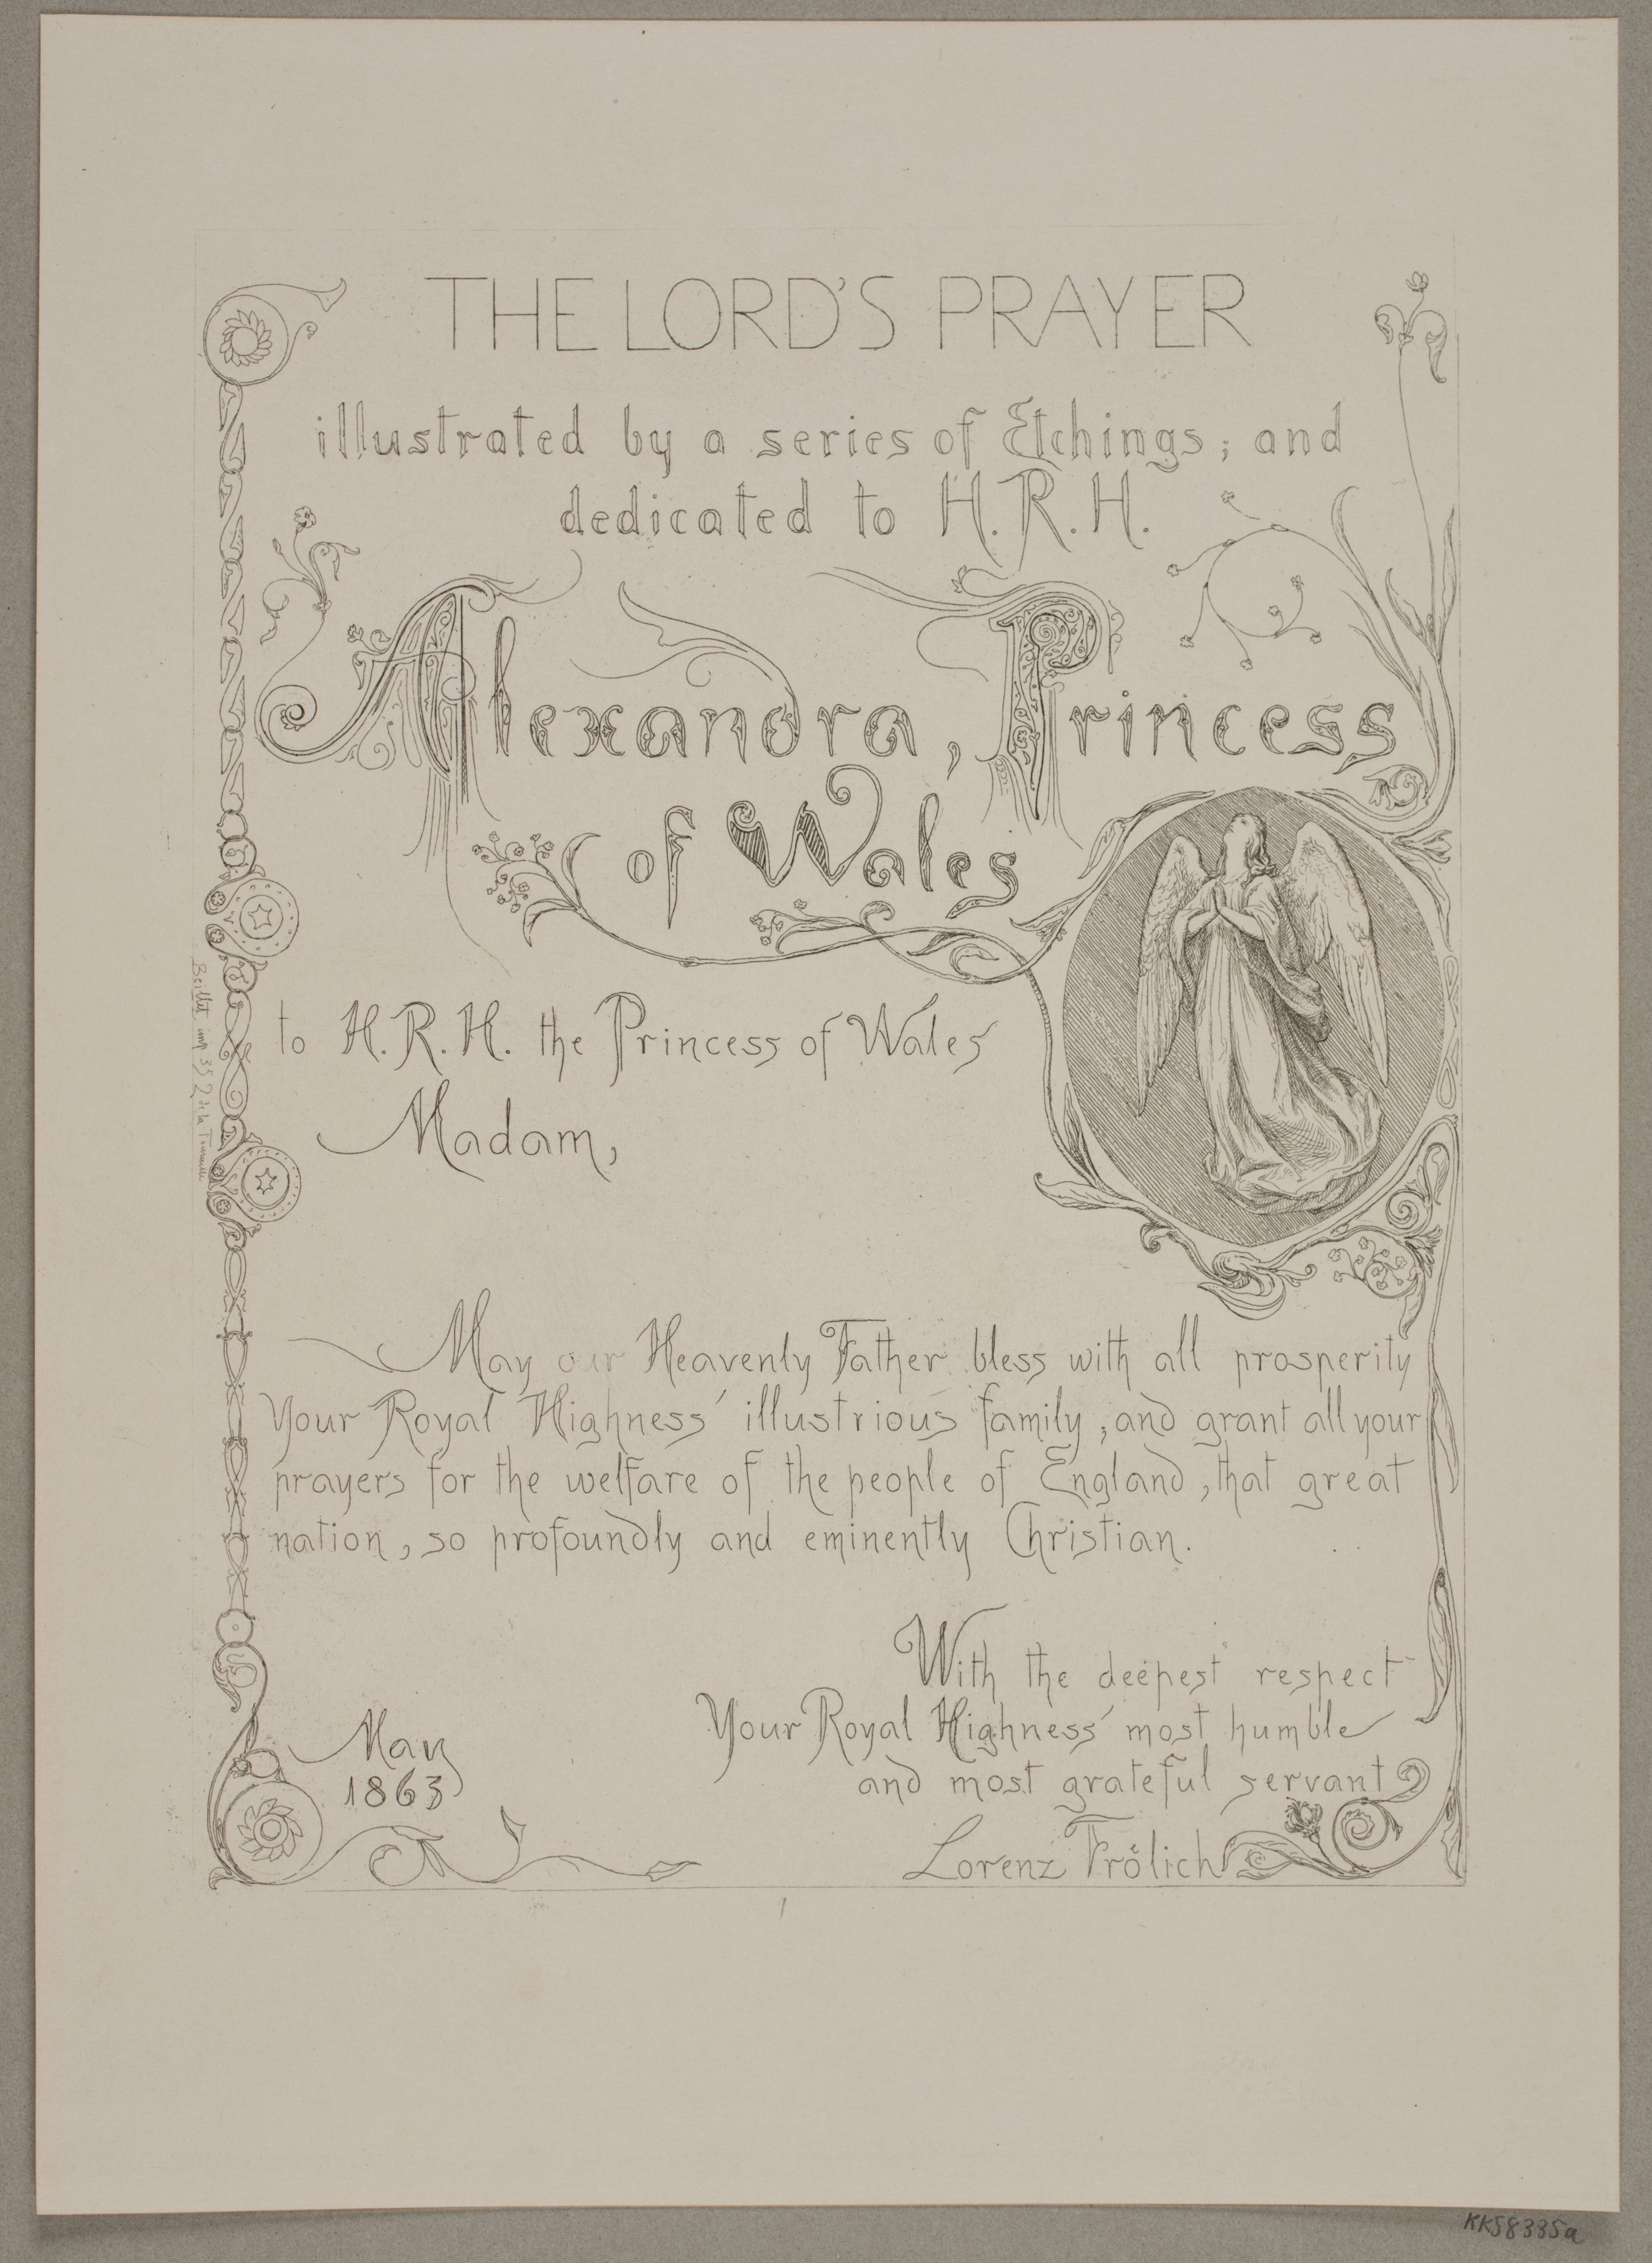 THE LORD'S PRAYER
illustrated by a series of Etchings; and
dedicated to H.R.H.
Alexandra, Princess
of Wales
to H.R.H. the Princess of Wales
Madam,
May our Heavenly Father bless with all prosperity
Your Royal Highness' illustrious family, and grant all your
prayers for the welfare of the people of England, that great
nation, so profoundly and eminently Christian.
With the deepest respect
Your Royal Highness' most humble
and most grateful servant
Lorenz Frölich
May
1863
imp 35
KKS8335a